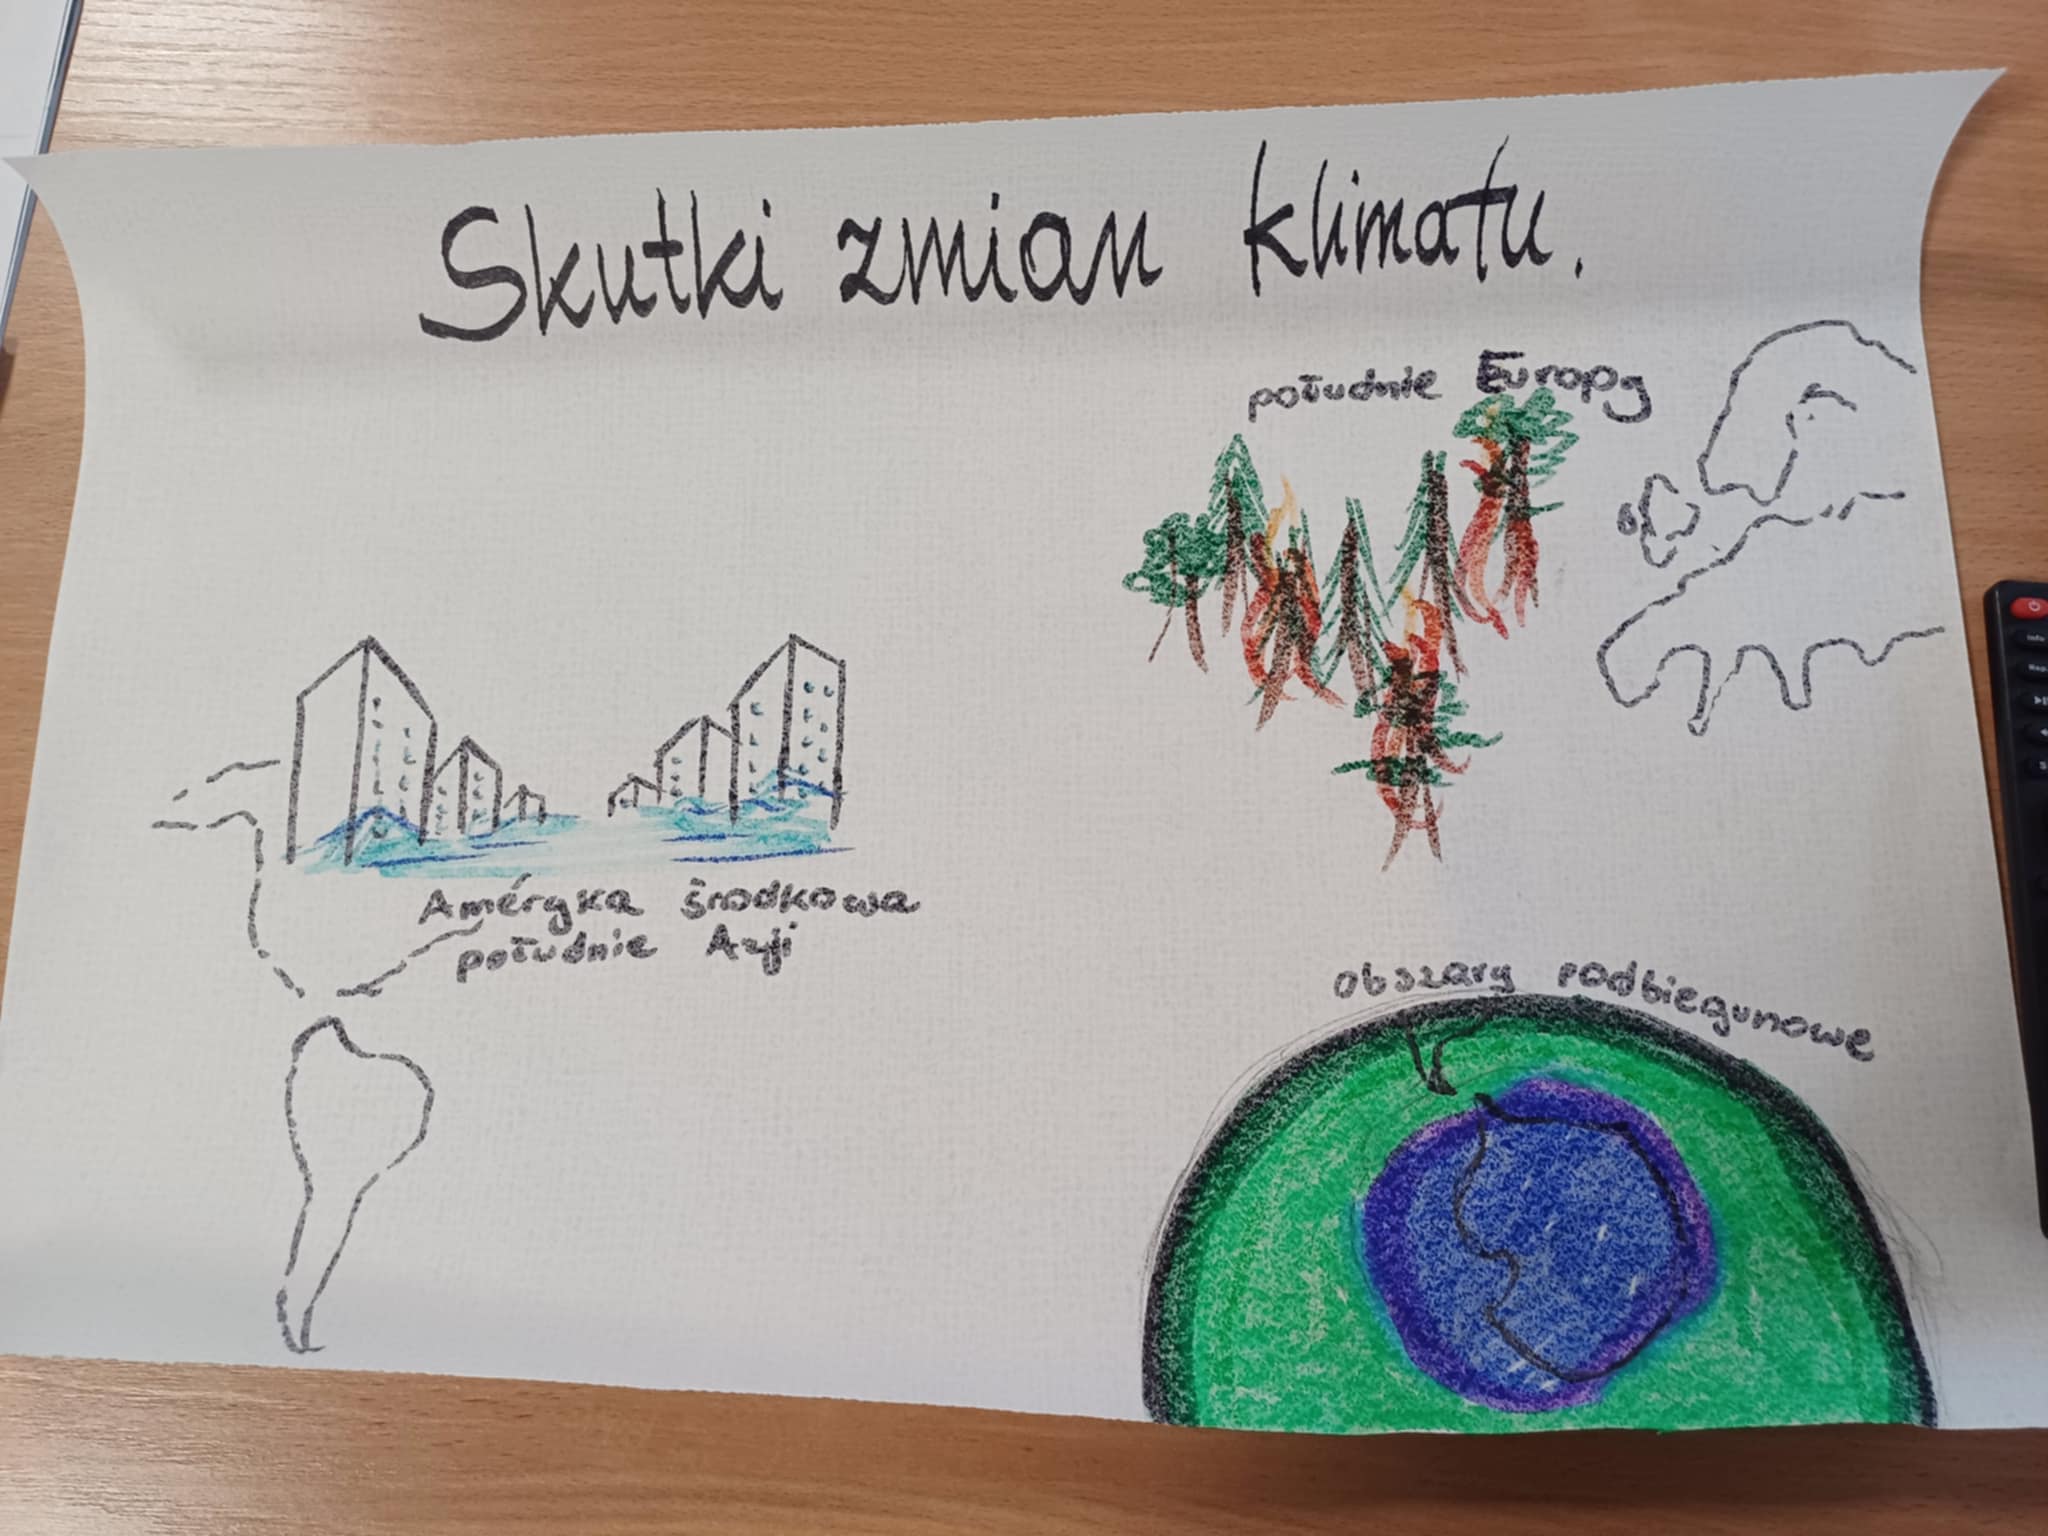 Skutki zmian klimatu.
południe Europy
Améryka środkowa
południe Azji
obszary podbiegunowe